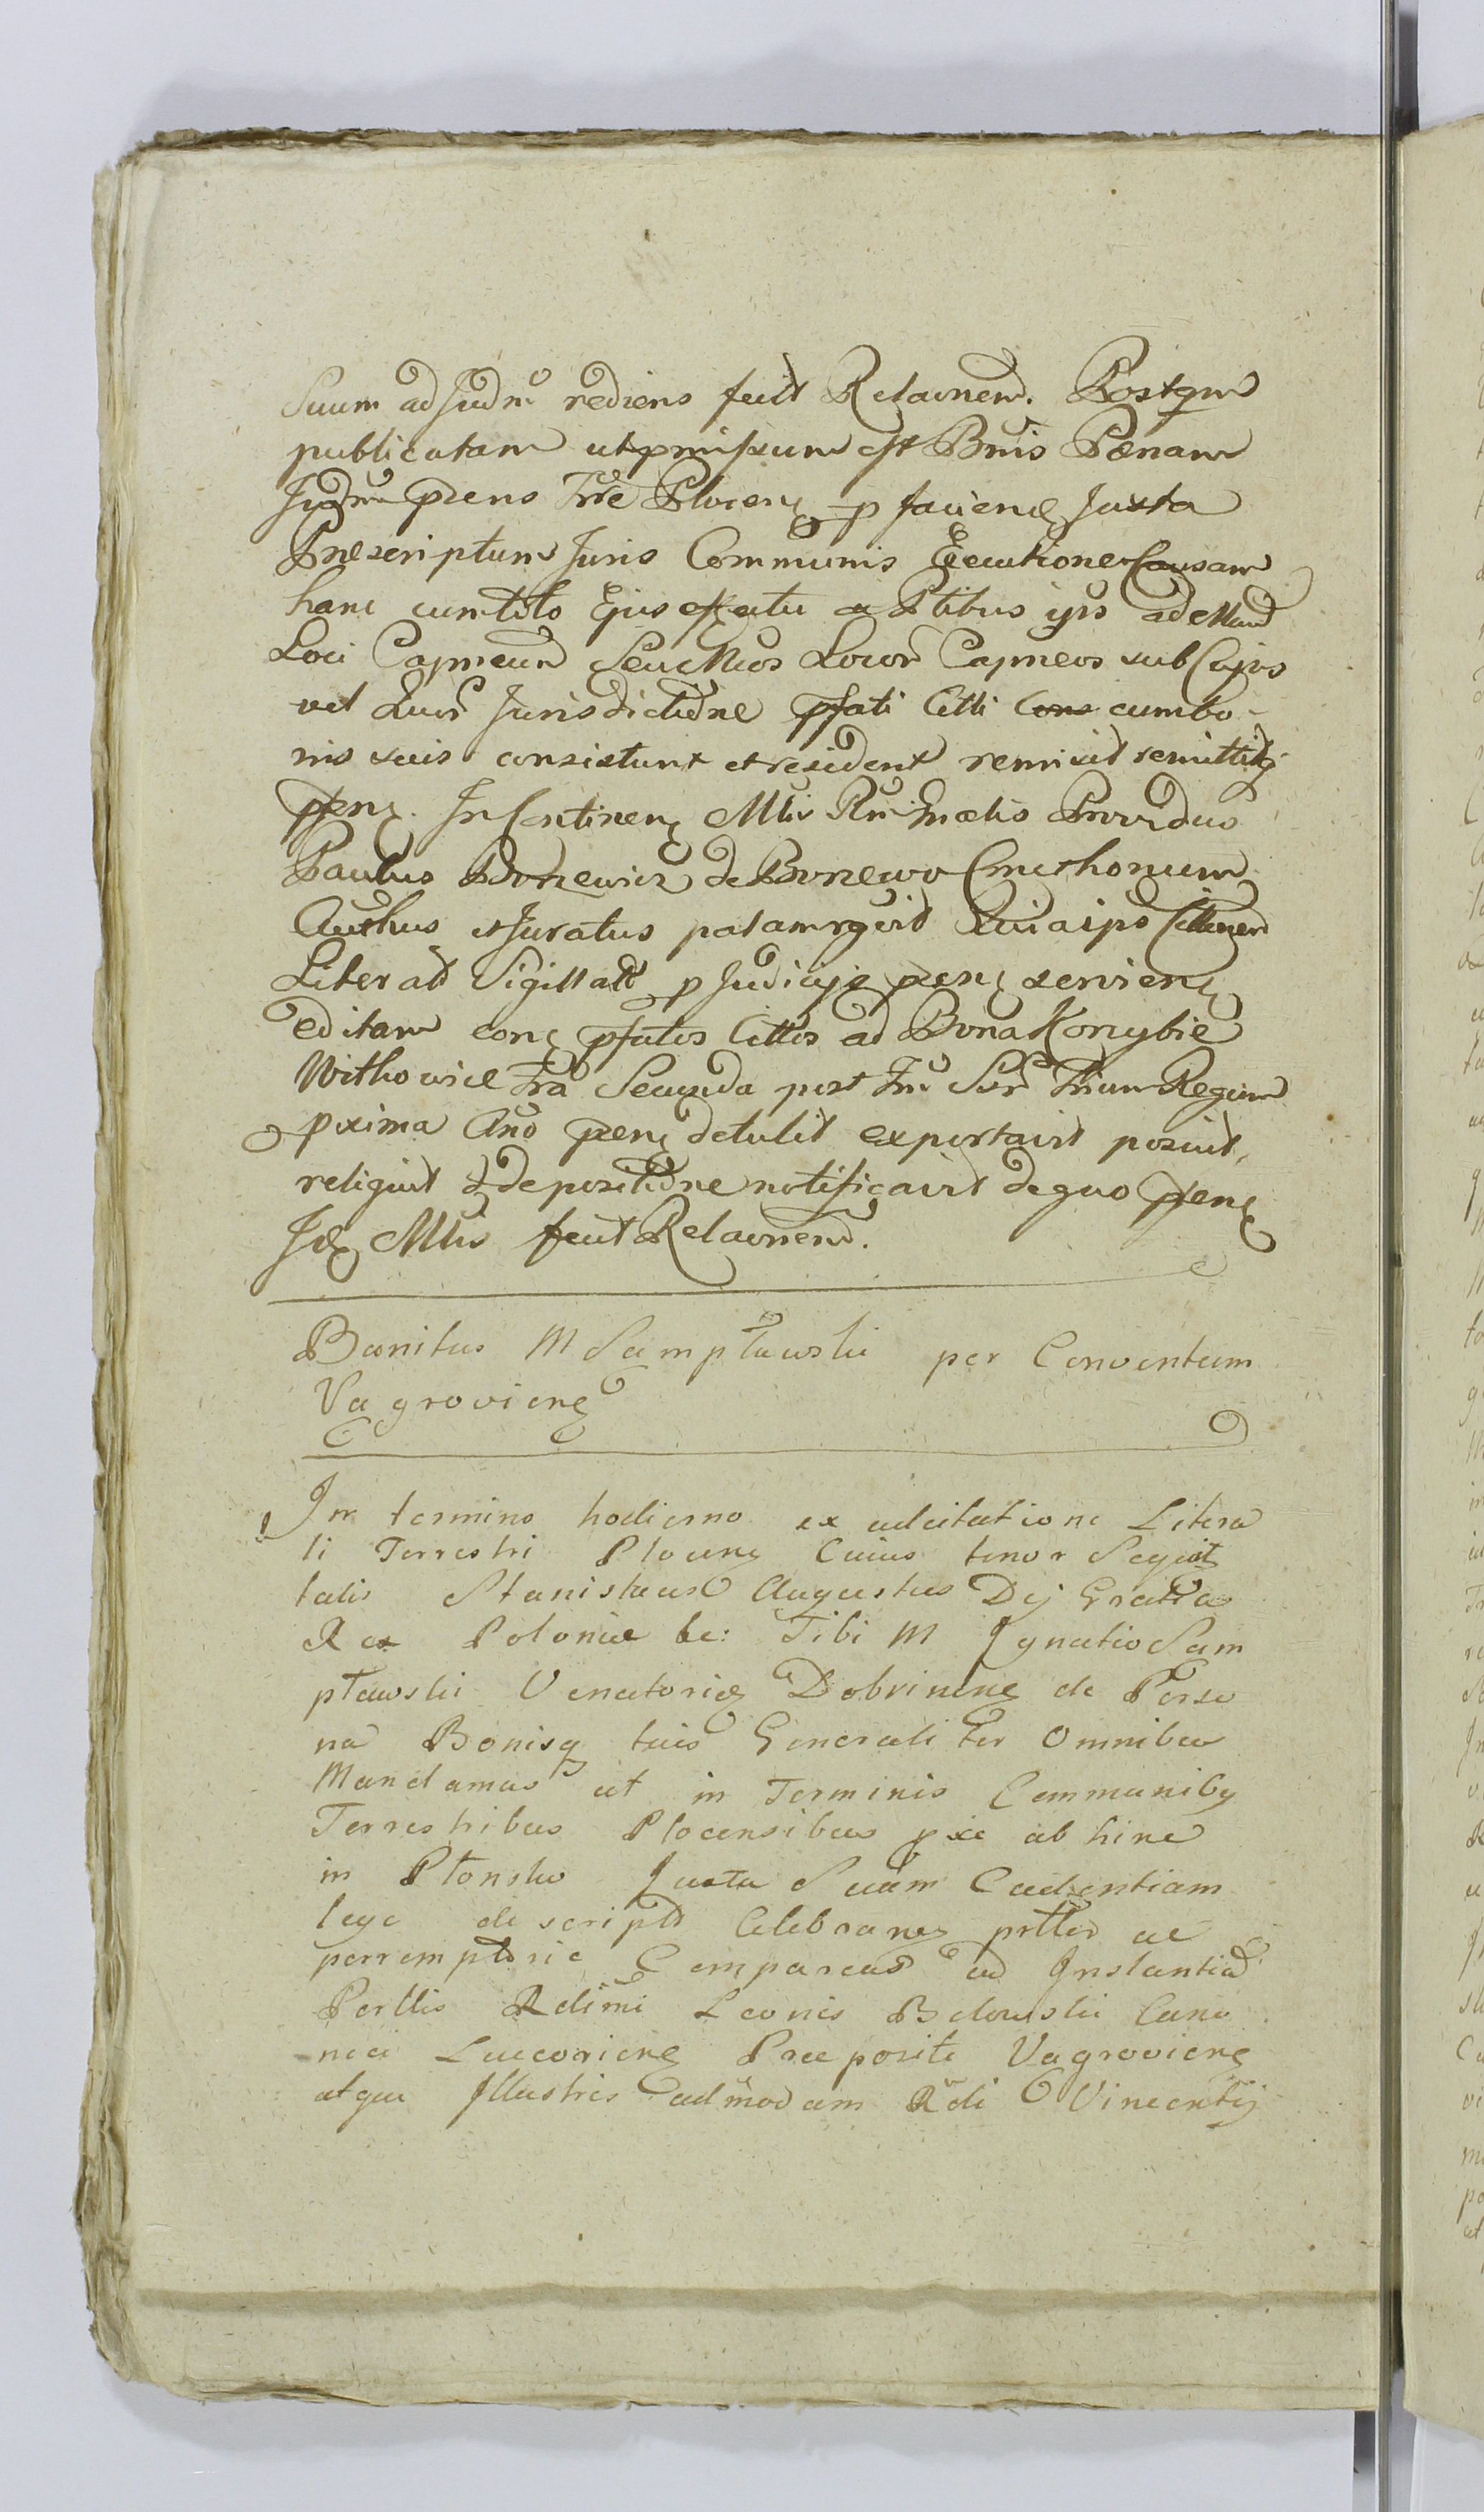 Suum ad Judm rediens fecit Relaonem. Postqm
publicatam ut pmissum est Bnis Pænam
Judm pñs Trre Plocen p faciend Juxta
Præscriptum Juris Communis Executione Causam
hanc cum toto Ejus effectu a Ptibus ipis ad Mand
Loci Capneum Seu Mcos Locor Capneos sub Cujus
vel Quor Jurisdictione pfati Citti cum bo-
nis suis consistunt et resident remisit remittitq
pñs. In Continen Mlis Rni Gnalis Providus
Paulus de Cmethonum
Authus et Juratus palam rgvit Quia ips Cittonem
Literal Sigillat p Judicije pñs servien
editam con pfatos Cittos ad Bona Konybie
Withowice fra Secunda post Sor Trium Regum
pxima Ano pñs detulit exportavit posuit,
reliquit & de positione notificavit de quo pñs
Id Mlis fecit Relaonem.
Banitus M Sampławski per Conventum
Vagroviens
In termino hodierno ex adcitatione Litera
li Terrestri Plocens Cuius tenor Sequit
talis Stanislaus Augustus Dej Gratia
Rex Poloniæ &c: Tibi M Ignatio Sam
pławski Venatorid Dobrinens de Perso
na Bonisq tuis Generaliter Omnibus
Mandamus ut in Terminis Communibq
Terrestribus Plocensibus pxe ab hinc
in Płonsko Juxta Suam Cadentiam
lege descripta Celebrans prtter ac
perremptorie Compareas ad Instantia
Perllis Rdimi Leonis Belowski Cano
nici Luccoriens Præpositi Vagroviens
atque Illustris admodum Rdi Vincentij